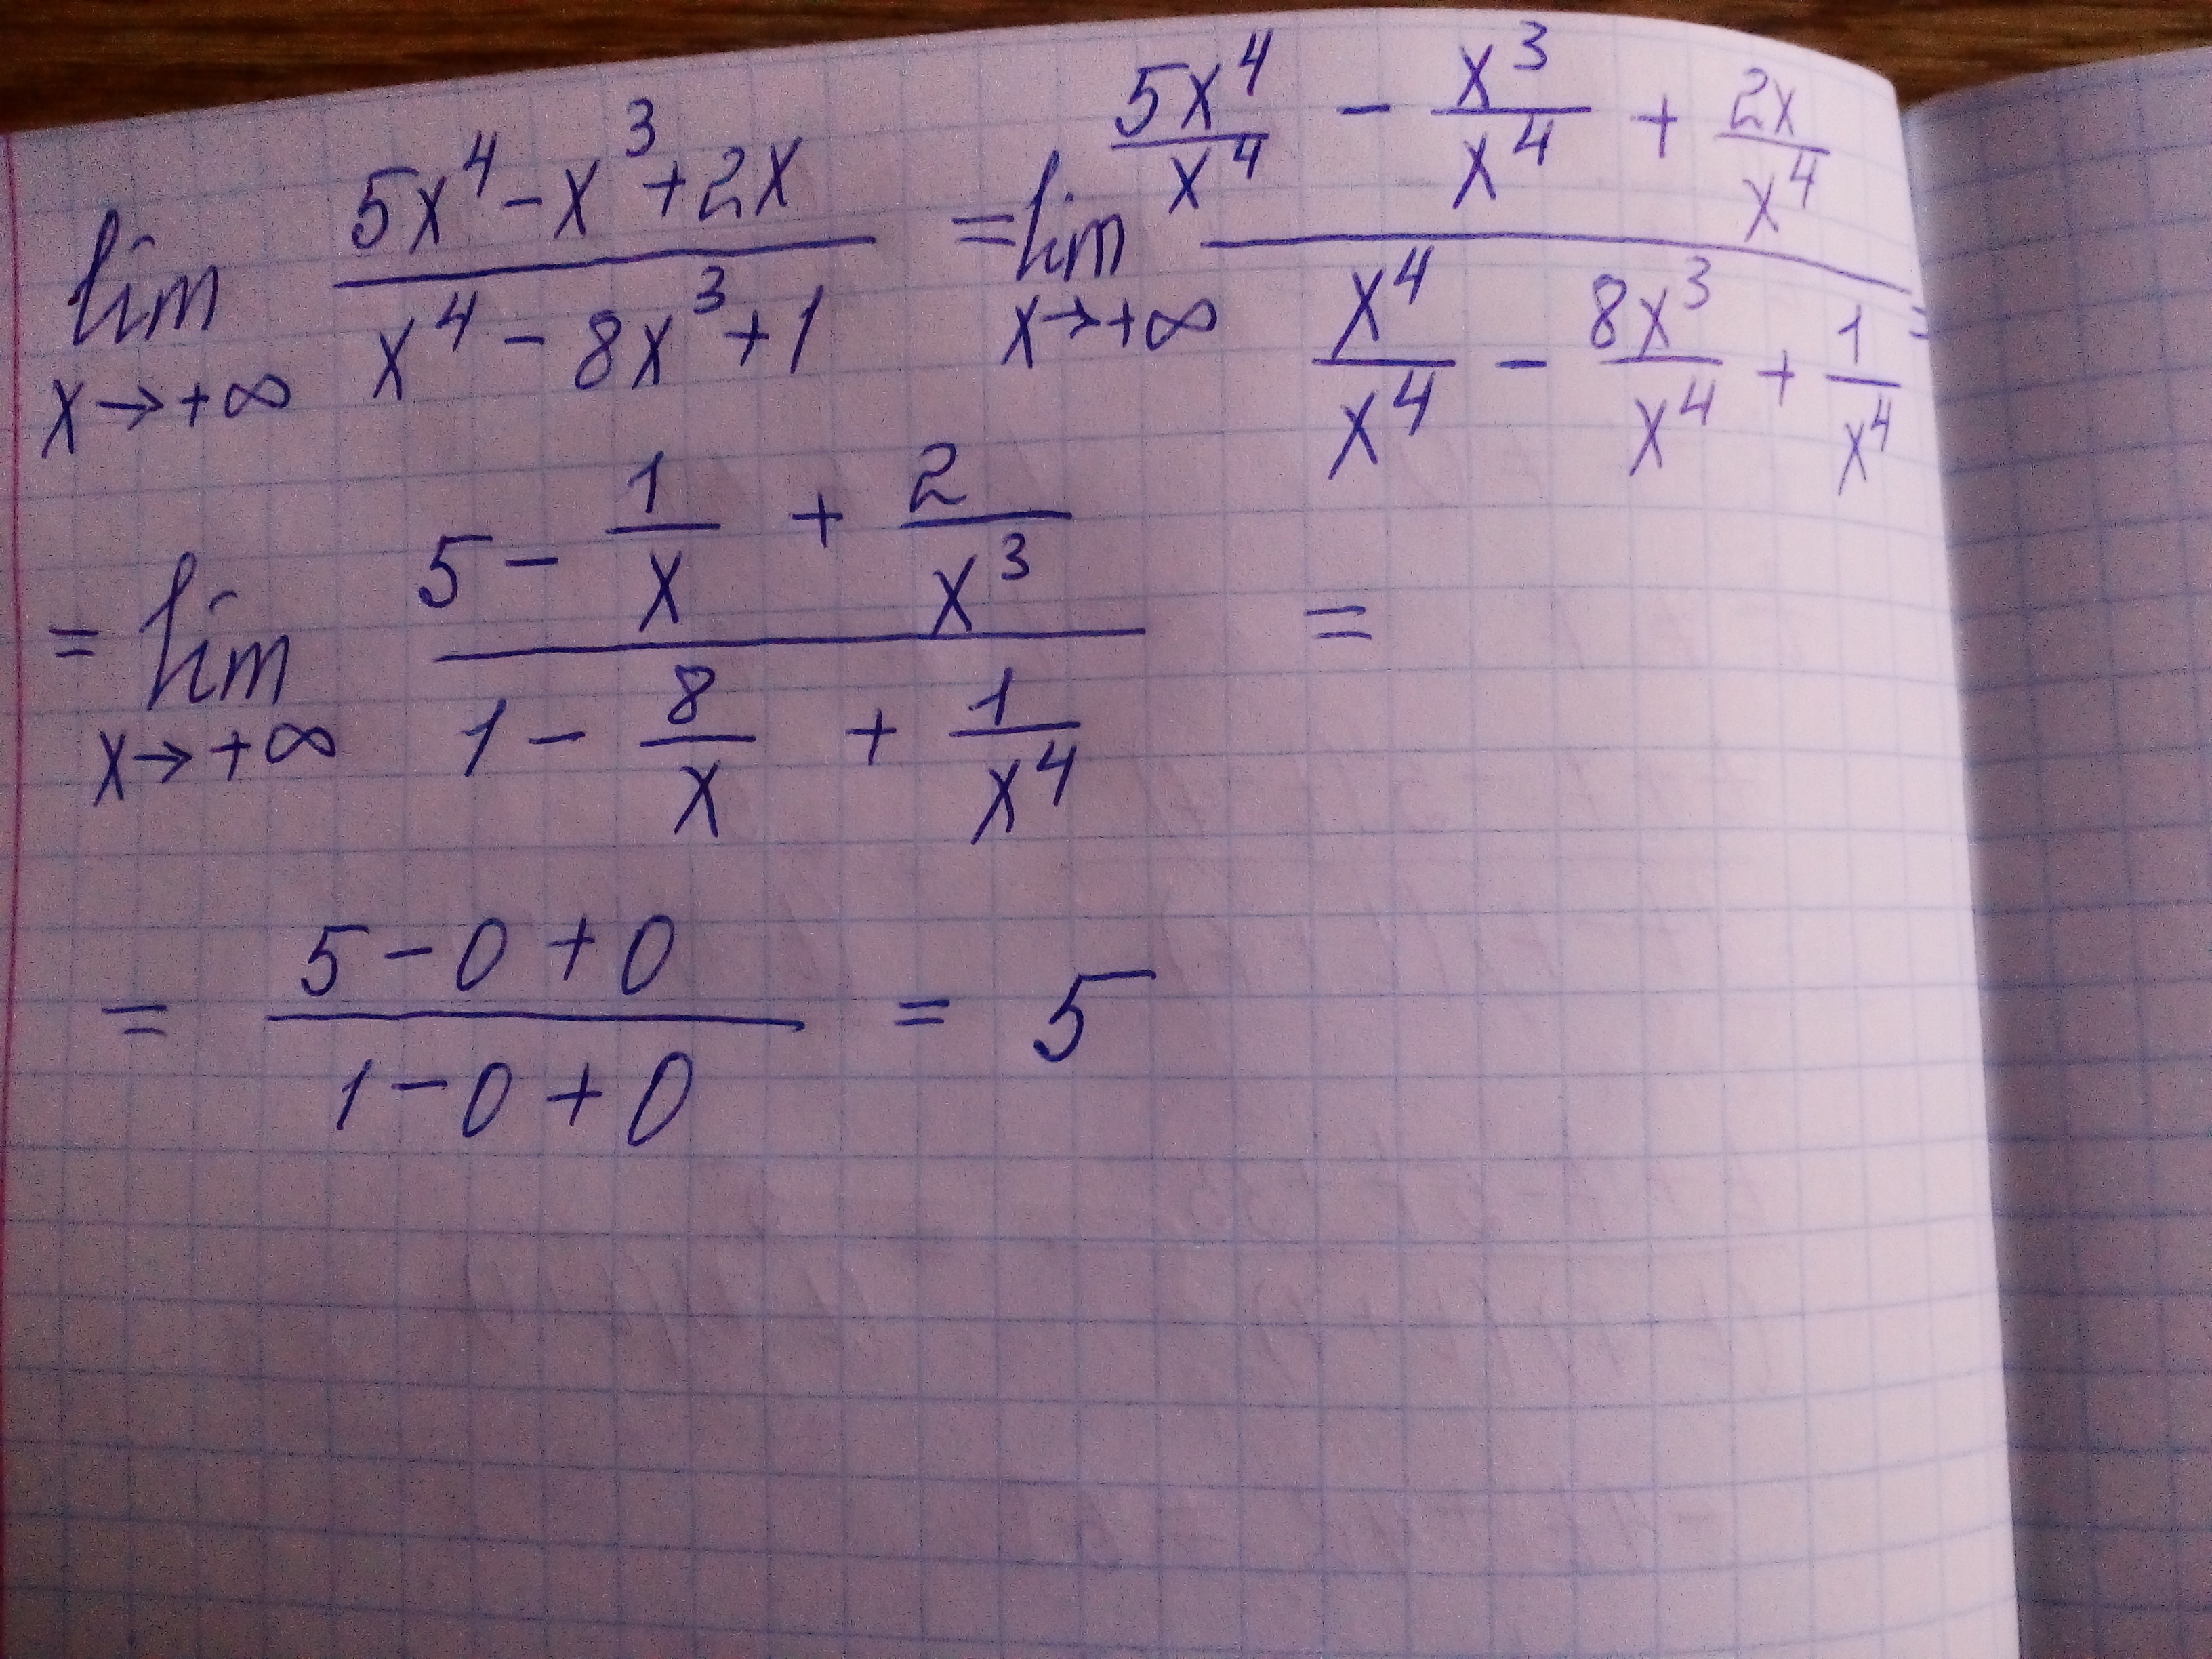 lim x→+∞ (5x⁴ − x³ + 2x)/(x⁴ − 8x³ + 1) = lim x→+∞ (5x⁴/x⁴ − x³/x⁴ + 2x/x⁴)/(x⁴/x⁴ − 8x³/x⁴ + 1/x⁴) =
= lim x→+∞ (5 − 1/x + 2/x³)/(1 − 8/x + 1/x⁴) =
= (5 − 0 + 0)/(1 − 0 + 0) = 5